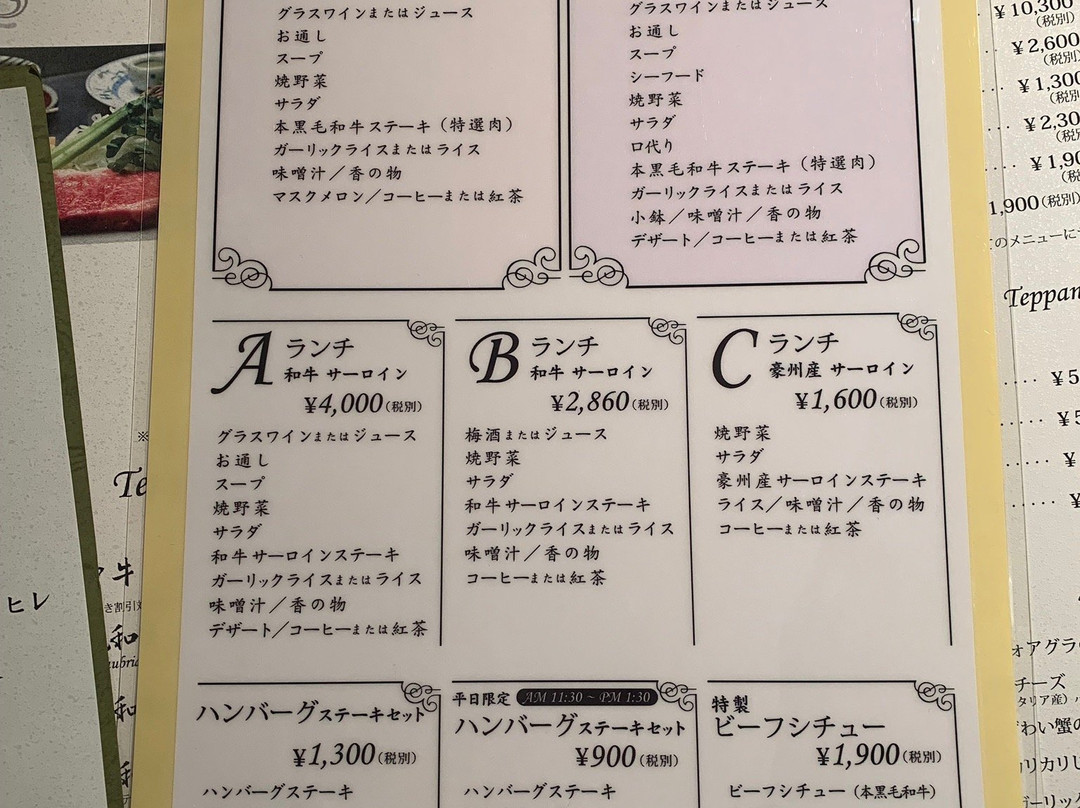 グラスワインまたはジュース
お通し
スープ
焼野菜
サラダ
本黒毛和牛ステーキ（特選肉）
ガーリックライスまたはライス
味噌汁／香の物
マスクメロン／コーヒーまたは紅茶
グラスワインまたはジュース
お通し
スープ
シーフード
焼野菜
サラダ
口代り
本黒毛和牛ステーキ（特選肉）
ガーリックライスまたはライス
小鉢／味噌汁／香の物
デザート／コーヒーまたは紅茶
A ランチ
和牛 サーロイン
¥4,000（税別）
グラスワインまたはジュース
お通し
スープ
焼野菜
サラダ
和牛サーロインステーキ
ガーリックライスまたはライス
味噌汁／香の物
デザート／コーヒーまたは紅茶
B ランチ
和牛 サーロイン
¥2,860（税別）
梅酒またはジュース
焼野菜
サラダ
和牛サーロインステーキ
ガーリックライスまたはライス
味噌汁／香の物
コーヒーまたは紅茶
C ランチ
豪州産 サーロイン
¥1,600（税別）
焼野菜
サラダ
豪州産サーロインステーキ
ライス／味噌汁／香の物
コーヒーまたは紅茶
ハンバーグステーキセット
¥1,300（税別）
ハンバーグステーキ
平日限定 AM 11:30 ~ PM 1:30
ハンバーグステーキセット
¥900（税別）
ハンバーグステーキ
特製
ビーフシチュー
¥1,900（税別）
ビーフシチュー（本黒毛和牛）
¥10,300
（税別）
¥2,600
（税別）
¥1,300
1,900（税別）
のメニューに
Teppan
チーズ
ヒレ
牛
和